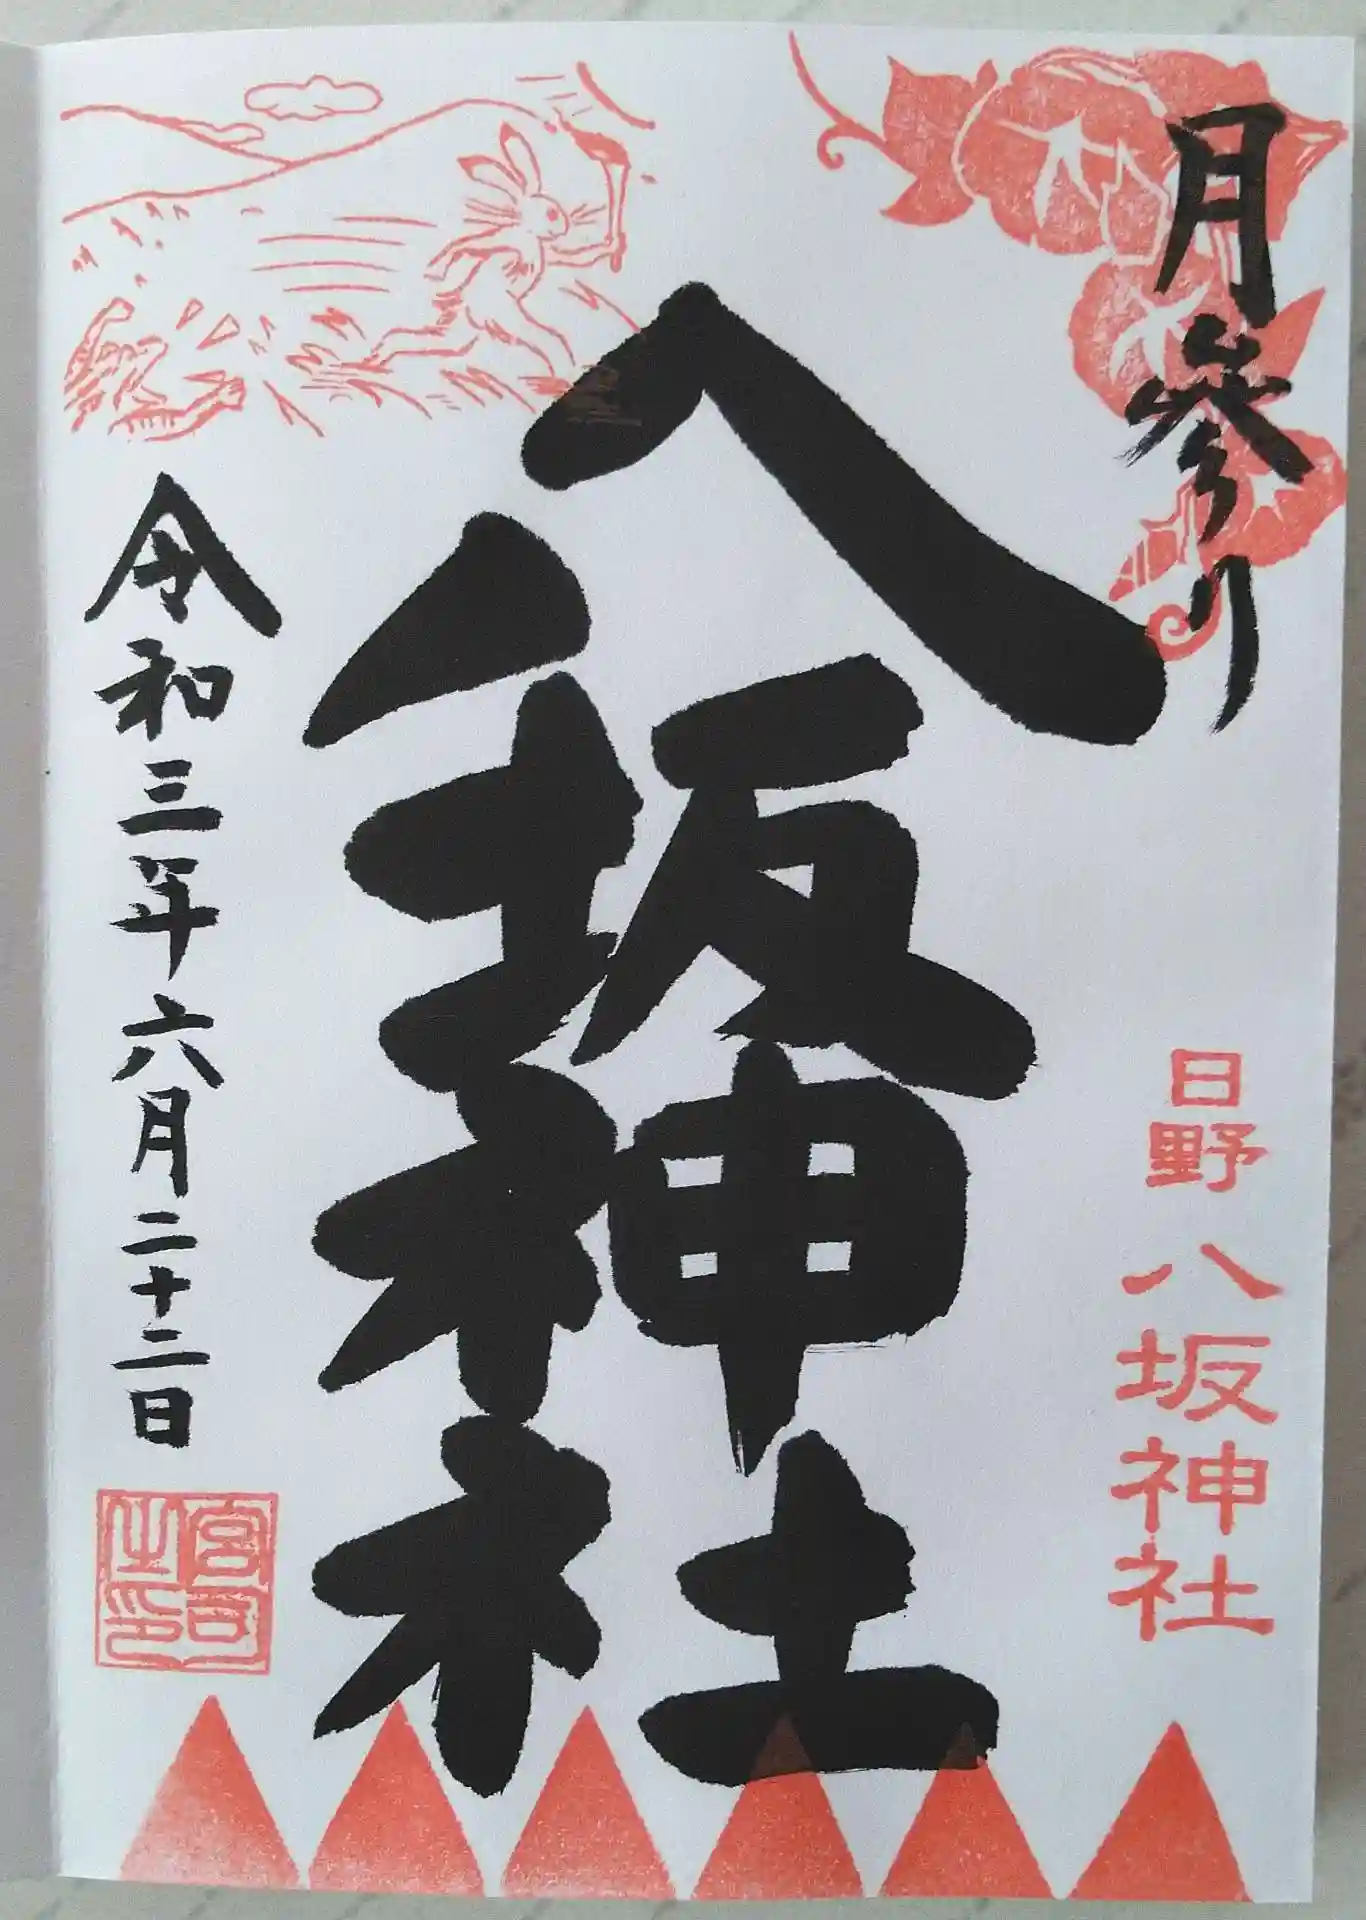 月参り
日野 八坂神社
八坂神社
令和三年六月二十二日
宮司之印